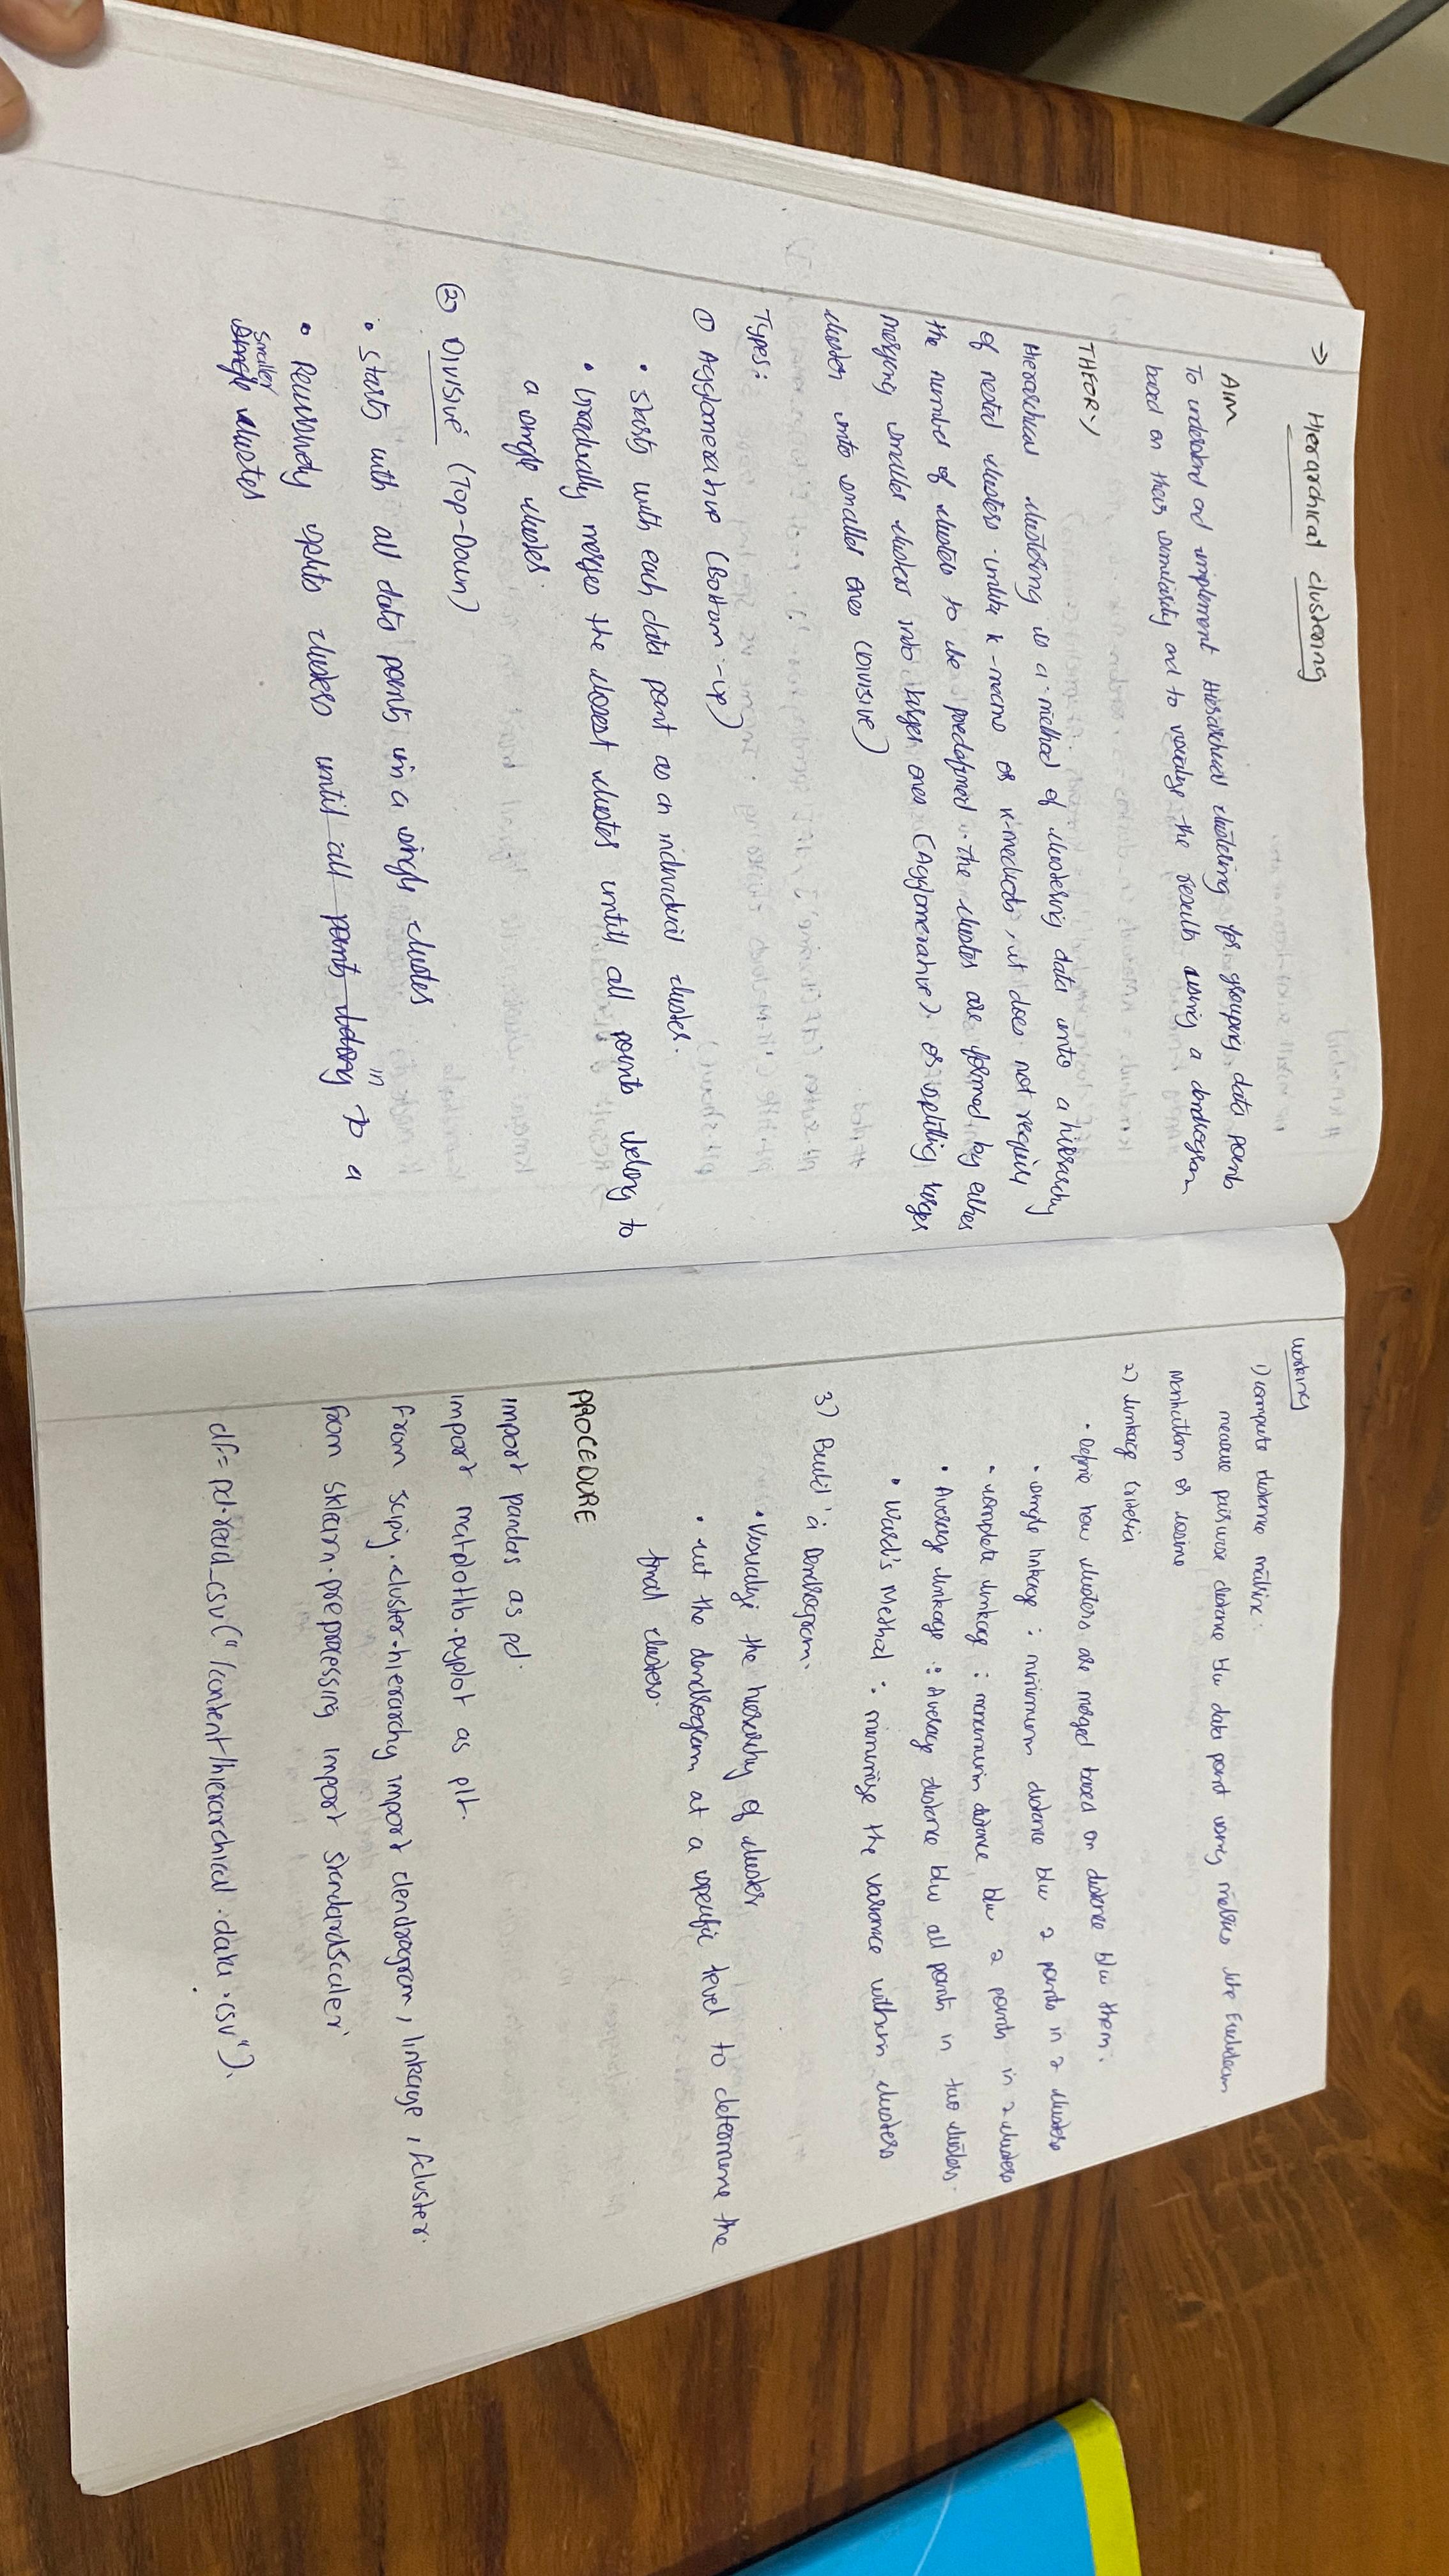 → Hierarchical clustering
AIM
To understand and implement Hierarchical clustering for grouping data points
based on their similarity and to visualize the results using a dendrogram
THEORY
Hierarchical clustering is a method of clustering data into a hierarchy
of nested clusters. unlike k-means or k-medoids, it does not require
the number of clusters to be predefined. the clusters are formed by either
merging smaller clusters into larger ones (Agglomerative) or splitting larger
clusters into smaller ones (Divisive)
Types:
① Agglomerative (Bottom-up)
• Starts with each data point as an individual cluster.
• Gradually merges the closest clusters until all points belong to
a single cluster.
② Divisive (Top-Down)
• Starts with all data points in a single cluster
• Recursively splits clusters until all points belong in to a
smaller cluster
Working
1) compute distance matrix:
measure pairwise distance b/w data point using metrics like Euclidean
Manhattan or cosine
2) Linkage criteria
• Define how clusters are merged based on distance b/w them.
• single linkage : minimum distance b/w 2 points in 2 clusters
• complete linkage : maximum distance b/w 2 points in 2 clusters
• Average linkage : Average distance b/w all points in two clusters.
• Ward's Method : minimise the variance within clusters
3) Build a Dendrogram.
• Visualize the hierarchy of cluster
• cut the dendrogram at a specific level to determine the
final clusters.
PROCEDURE
import pandas as pd.
import matplotlib.pyplot as plt.
from scipy.cluster.hierarchy import dendrogram, linkage, fcluster.
from sklearn.preprocessing import StandardScaler
df = pd.read_csv("/content/hierarchical.data.csv").